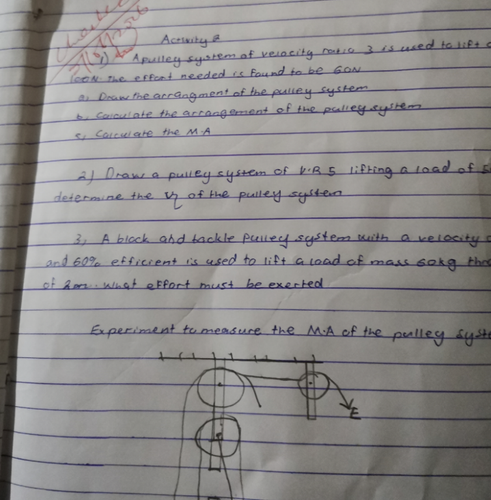 Activity 2
1) A pulley system of velocity ratio 3 is used to lift
100N. The effort needed is found to be 60N
a, Draw the arrangment of the pulley system
b, Calculate the arrangement of the pulley system
c, Calculate the M.A
2) Draw a pulley system of V.R 5 lifting a load of 5
determine the η of the pulley system
3, A block and tackle pulley system with a velocity
and 60% efficient is used to lift a load of mass 60kg
of 2m. What effort must be exerted
Experiment to measure the M.A of the pulley
E